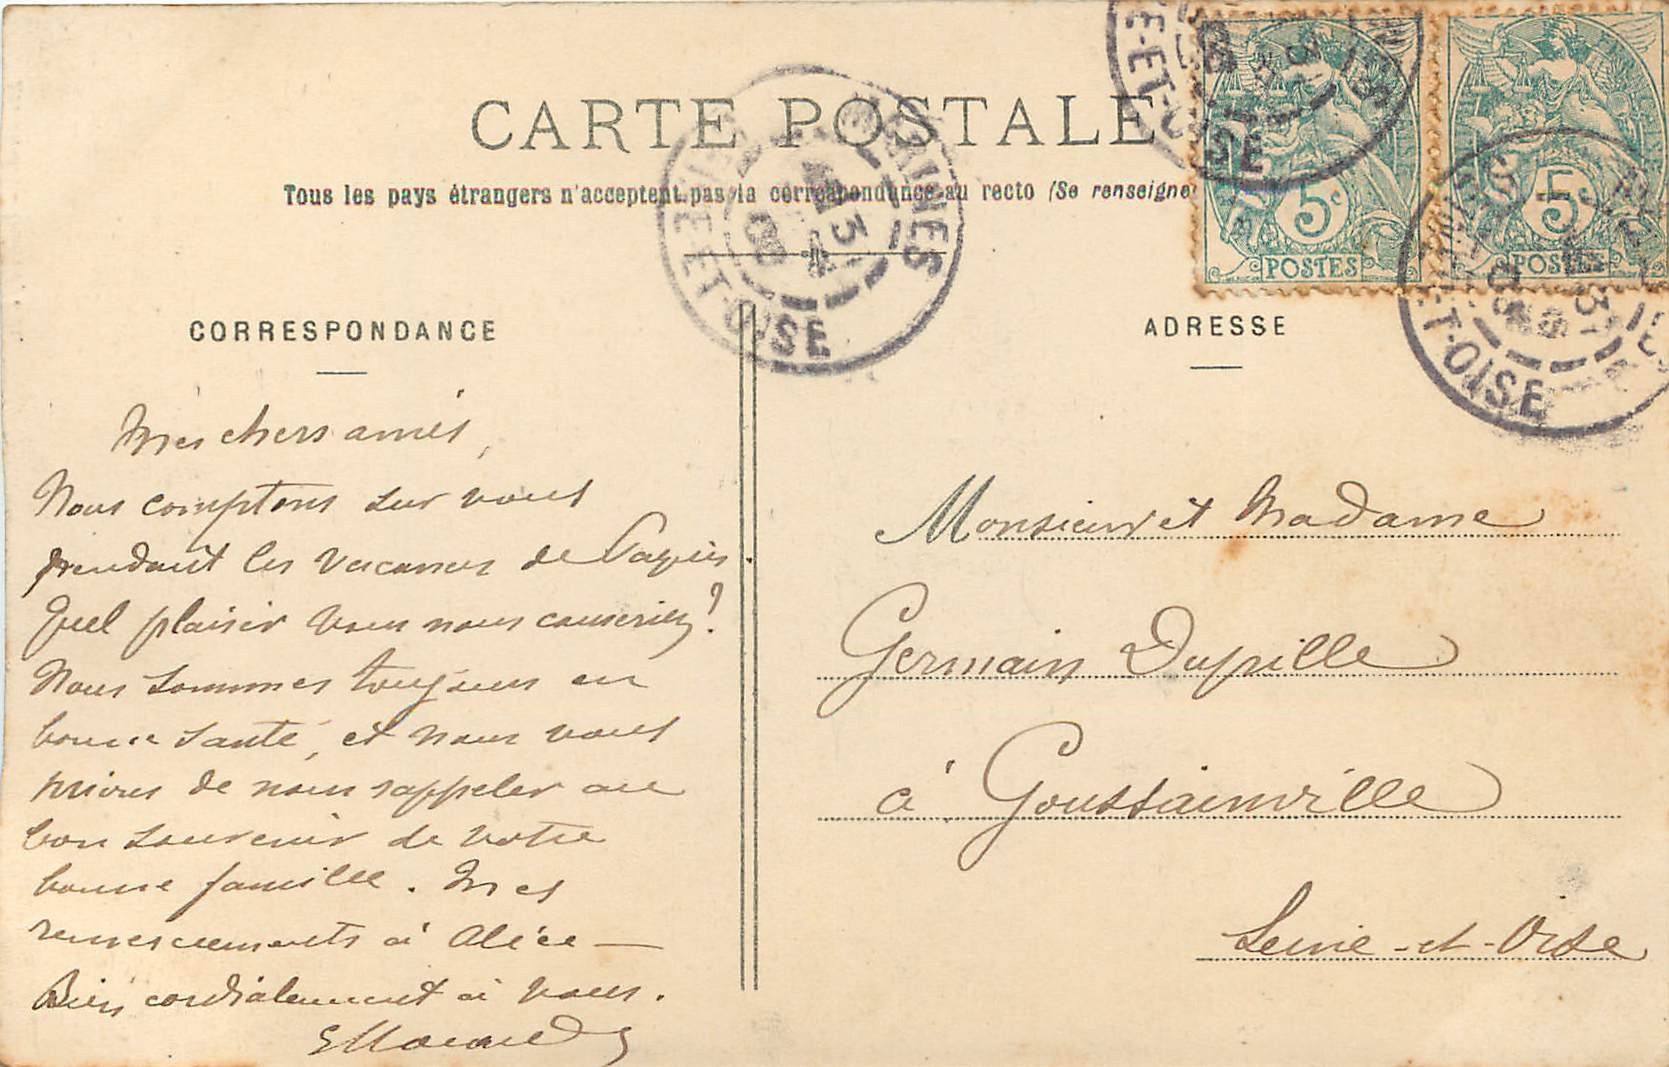 CARTE POSTALE
Tous les pays étrangers n'acceptent pas la correspondance au recto (Se renseigner
CORRESPONDANCE
Mes chers amis,
Nous comptons sur vous
pendant les vacances de Pâques.
Quel plaisir vous nous causeriez!
Nous sommes toujours en
bonne santé, et nous vous
prions de nous rappeler au
bon souvenir de votre
bonne famille. Mes
remerciements à Alice —
Bien cordialement à vous.
ADRESSE
Monsieur et Madame
Germain Dupille
à Goussainville
Seine-et-Oise
5c
POSTES
5c
POSTES
ET-OISE
ET-OISE
ET-OISE